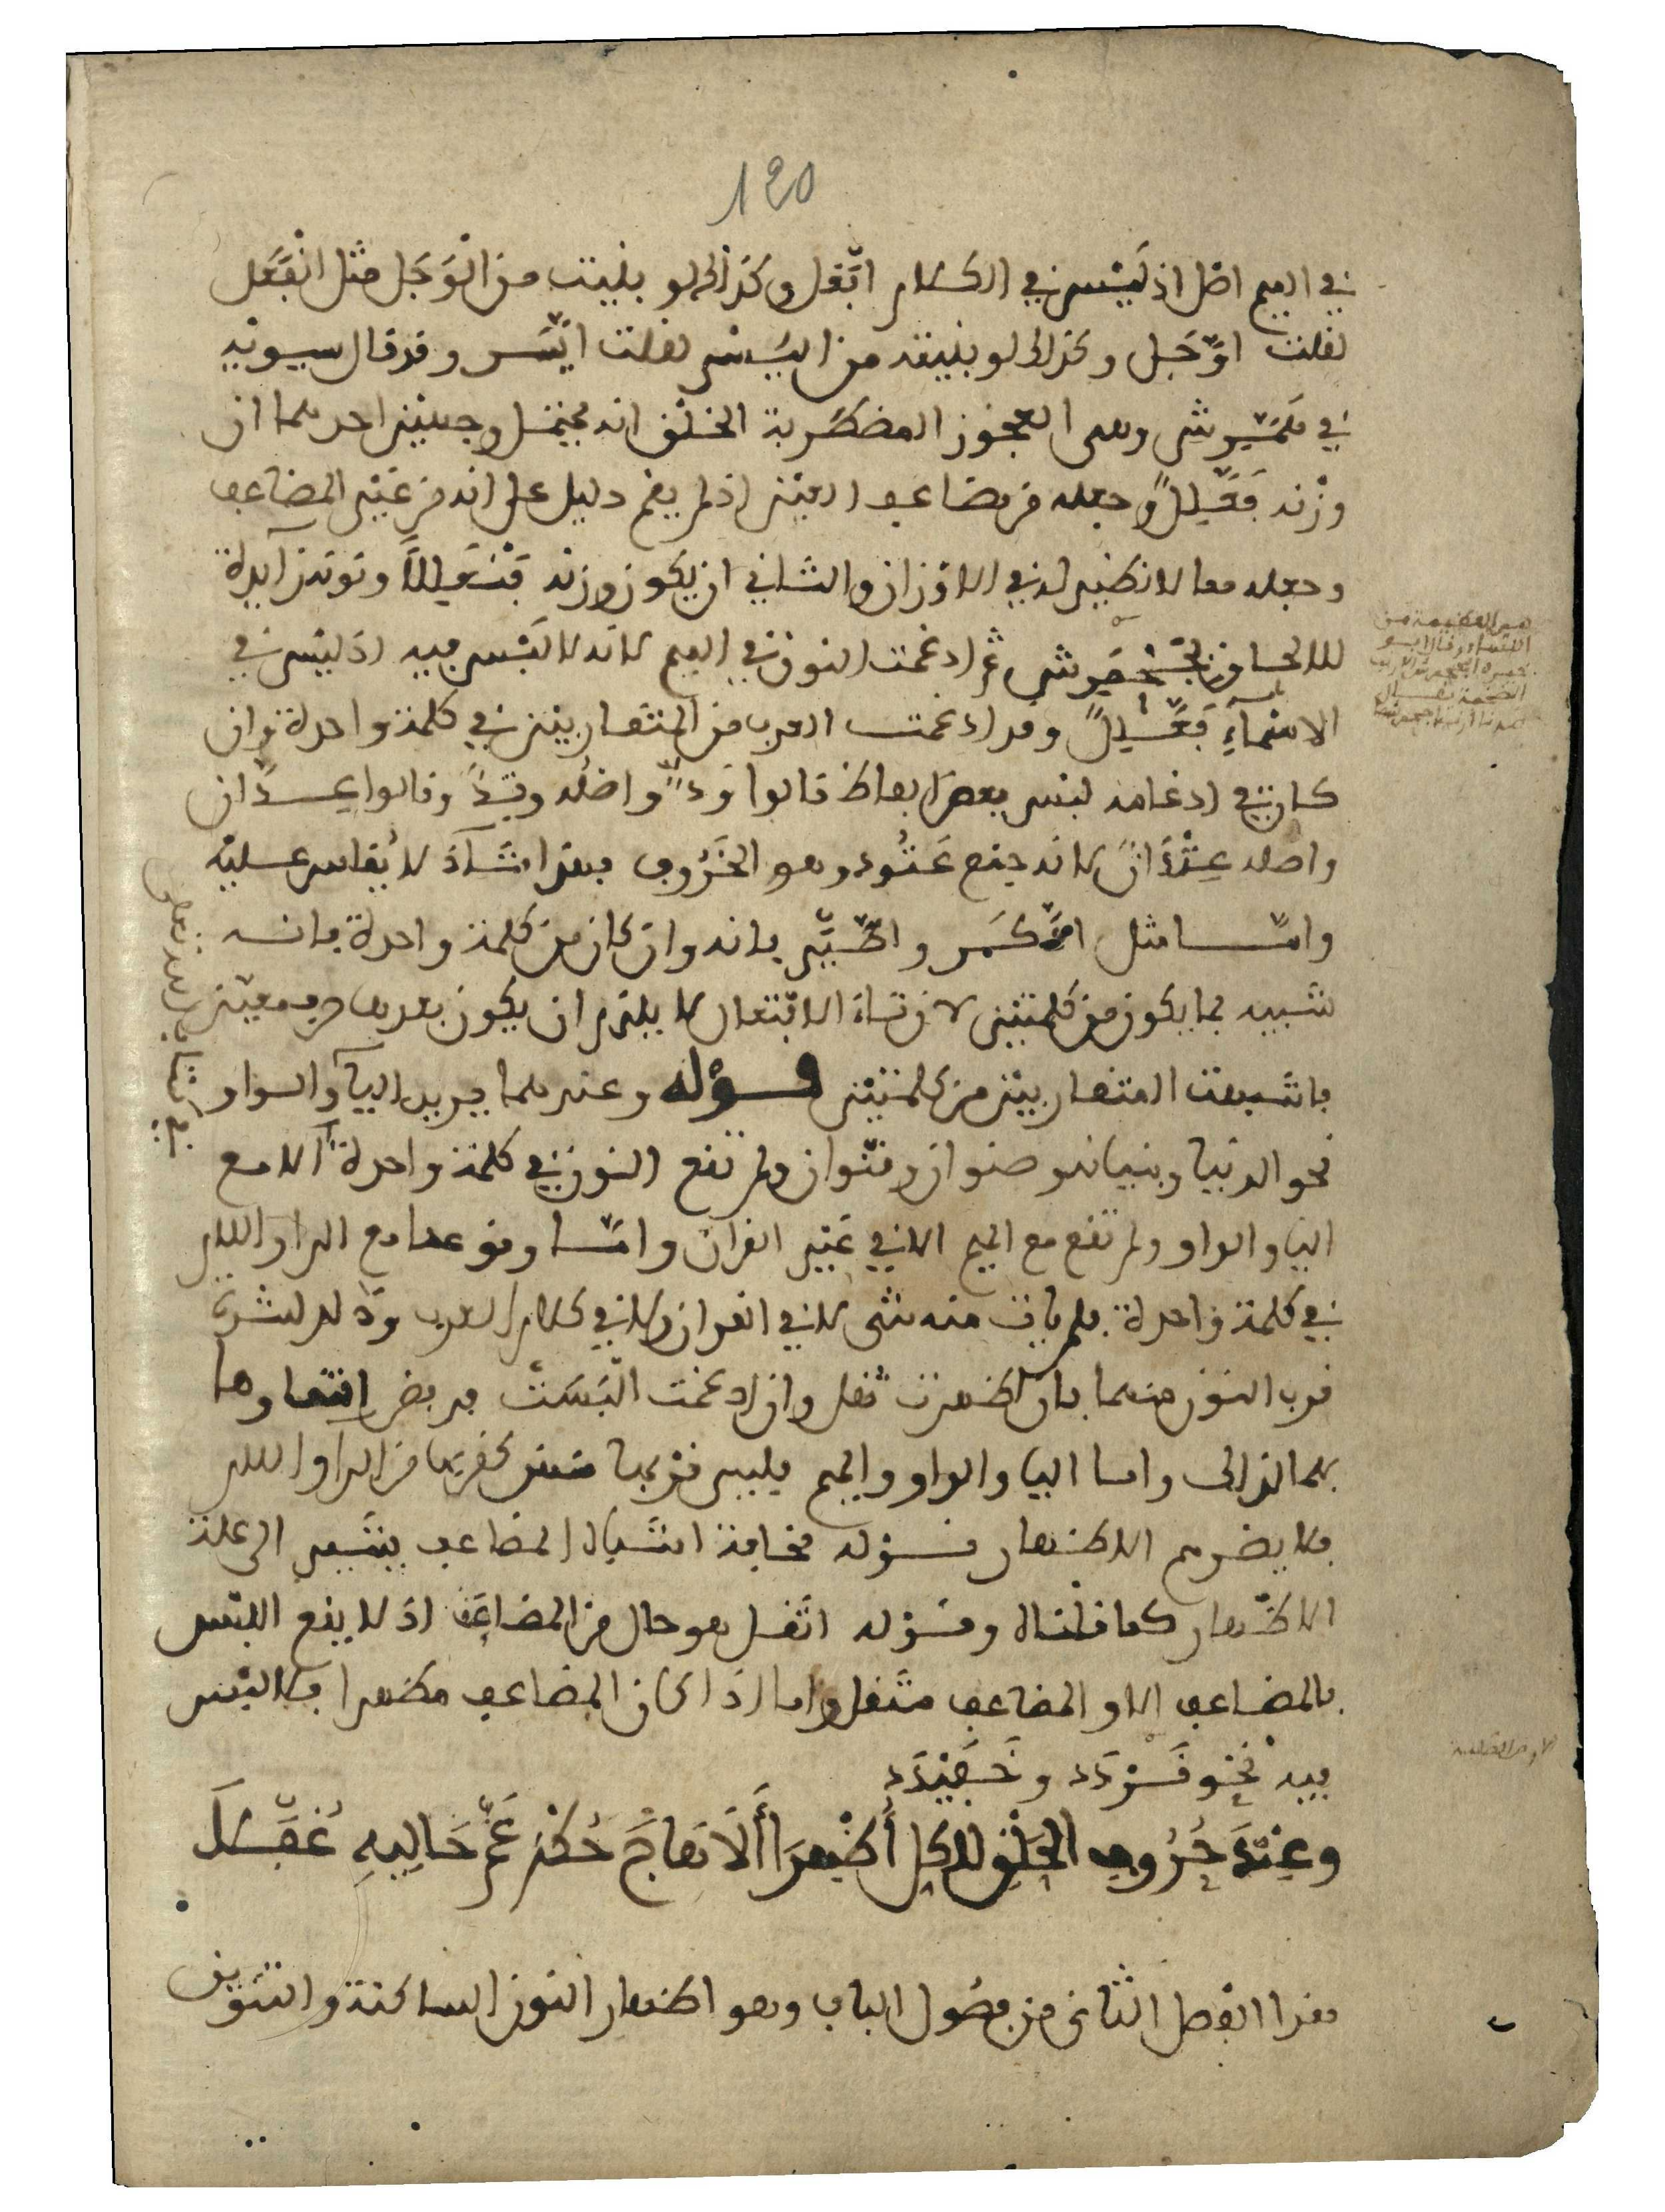 120
في الميم اصل اذ ليس في الكلام اتّفعل وكذلك لو بنيت من الوَجَل مثل انفَعَل
لقلت اوّجَل وكذلك لو بنيته من اليُسْر لقلت ايّسَر وقد قال سيبويه
في هَمَّرِش وهي العجوز المضطربة الخلق انه يحتمل وجهين احدهما ان
وزنه فَعَّلِل وجعله من مضاعف العين اذ لم يقم دليل على انه من غير المضاعف
وجعله معا لا نظير له في الاوزان والثاني ان يكون وزنه فَنْعَلِلًا ونونه زآيدة
للالحاق بجَحْمَرِش ثم ادغمت النون في الميم لانه لا لَبْس فيه اذ ليس في
الاسمآءِ فَعَّلِل وقد ادغمت العرب من المتقاربين في كلمة واحدة وان
كان في ادغامه لبس بعض الفاظ قالوا وَدٌّ واصله وتِدٌ وقالوا عِدّان
واصله عِتْدَانٌ لانه جمع عَتُود وهو الخَرُوف فهذا شَآذ لا يُقاس عليه
وامّا مثل واطّيّر فانه وان كان من كلمة واحدة فانه
شبيه بما يكون من كلمتين لان تاء الافتعال لا يلزم ان يكون بعدها حرف معين
فاشبهت المتقاربين من كلمتين قوله وعندهما يريد اليآ والواو
نحو الدنيا وبنيانه وصنوان وقنوان ولم تقع النون في كلمة واحدة الا مع
اليا والواو ولم تقع مع الميم الا في غير القرآن وامّا وقوعها مع الرا واللام
في كلمة واحدة فلم يات منه شى لا في القرآن ولا في كلام العرب وذلك لشدة
قرب النون منهما فان اظهرت ثقل وان ادغمت التبست فرفض
لذلك واما اليا والواو والميم فليس قربها منهن كقربها من الرا واللام
فلا يضرهم الاظهار قوله مخافة اشباه المضاعف يشير الى علة
الاظهار كما قلناه وقوله اثقلا هو حال من المضاعف اذ لا يقع اللبس
بالمضاعف الا والمضاعف مثقل واما اذا كان المضاعف مظهرا فلا لبس
فيه نحو قَرْدَد وخَفَيْدَد
وعِنْدَ حُرُوفِ الحَلْقِ للكلِّ أُظْهِرَا أَلَا هَاجَ حُكْمٌ عَمَّ خَالِيهِ غُفَّلَا
هذا الفصل الثاني من فصول الباب وهو اظهار النون الساكنة والتنوين